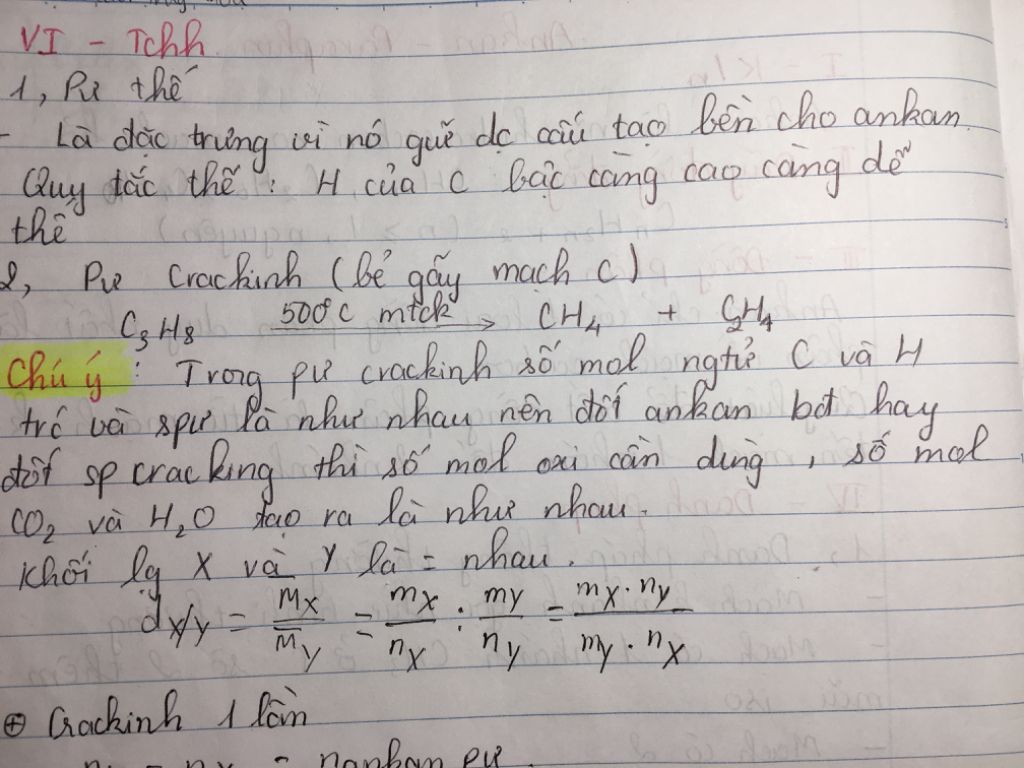 VI - Tchh
1, Pư thế
- Là đặc trưng vì nó giữ dc cấu tạo bền cho ankan.
Quy tắc thế : H của C bậc càng cao càng dễ
thế
2, Pư Crackinh (bẻ gãy mạch C)
C3H8 500°C mtck → CH4 + C2H4
Chú ý : Trong pư crackinh số mol ngtử C và H
trc và spư là như nhau nên đốt ankan bđ hay
đốt sp cracking thì số mol oxi cần dùng, số mol
CO2 và H2O tạo ra là như nhau.
Khối lg X và Y là = nhau.
dX/Y = MX/MY = mX/nX : mY/nY = mX.nY/mY.nX
⊕ Crackinh 1 lần